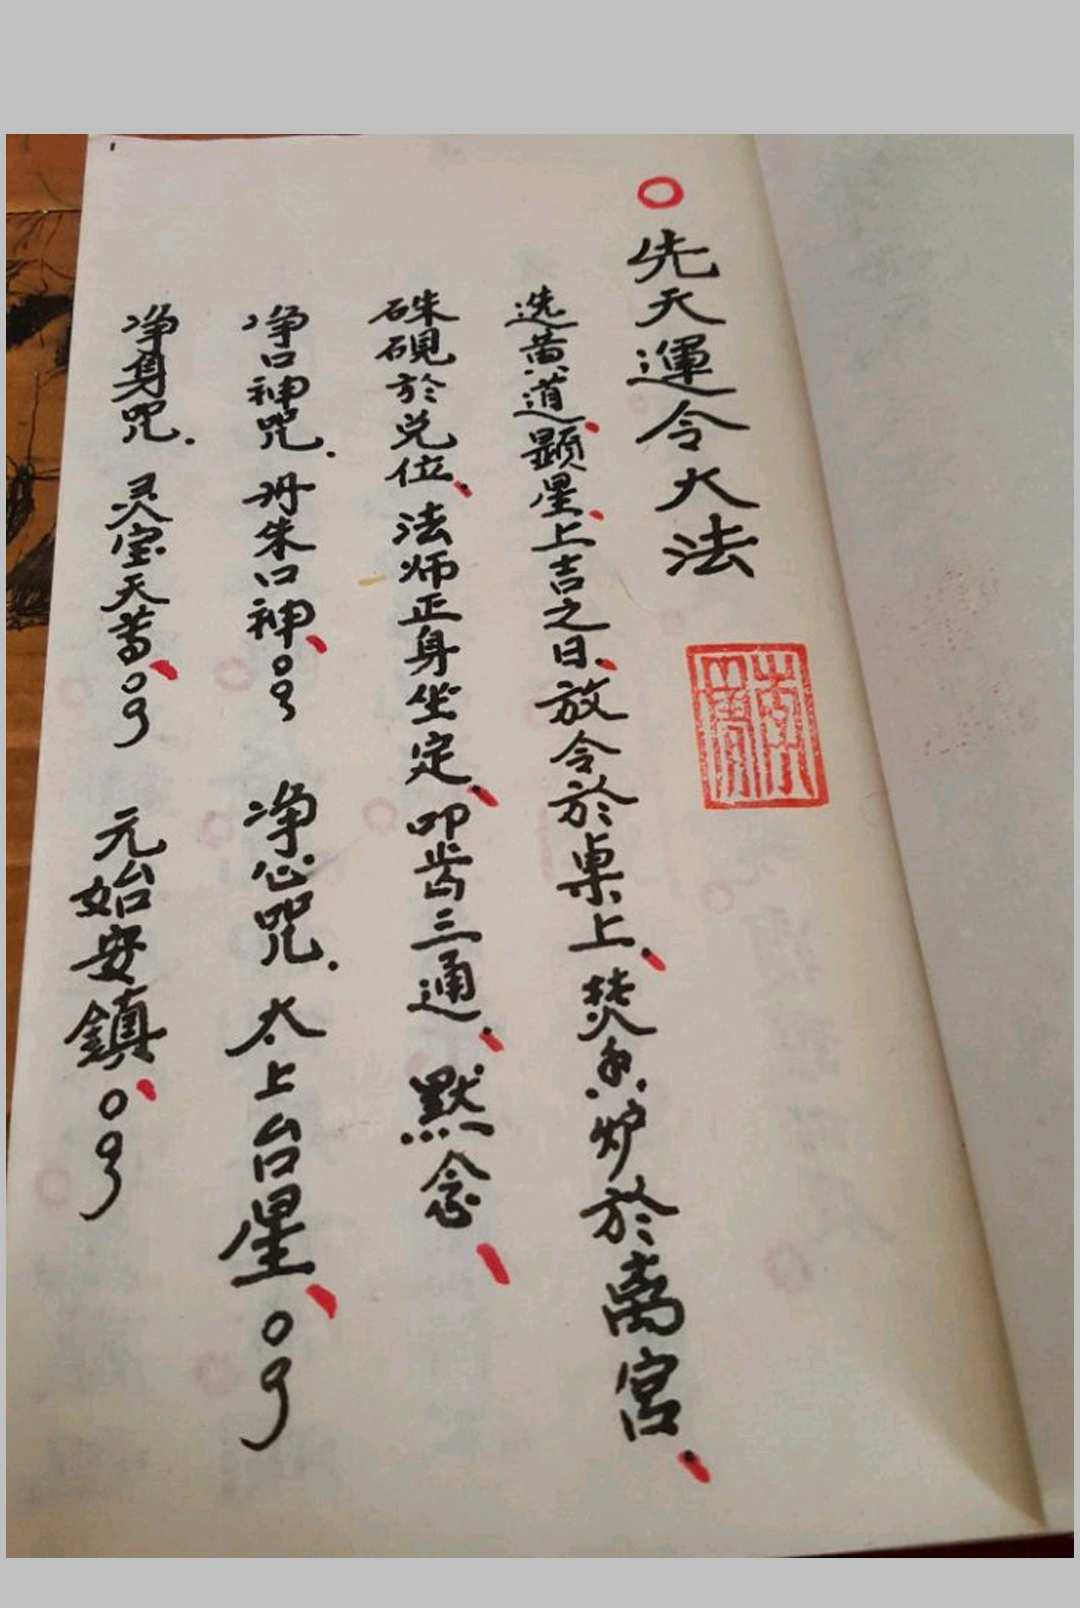 先天運令大法
选黄道、顕星、上吉之日、放令於桌上、焚香炉於离宫、
硃硯於兑位、法师正身坐定、叩齿三通、默念、
净口神咒.丹朱口神、○○ 净心咒.太上台星、○○
净身咒.灵宝天尊、○○ 元始安鎮、○○